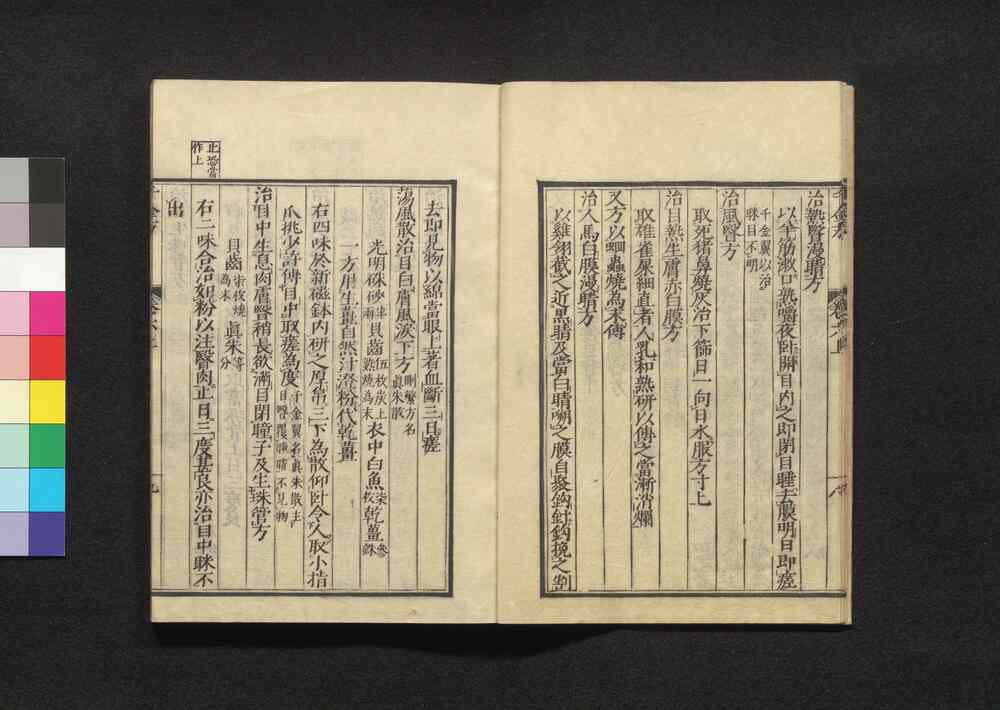 治熱瞖漫睛方
以羊筋漱口熟嚼夜臥開目內之即閉目睡去膜明日即瘥
千金翼以治
眯目不明
治風瞖方
取死猪鼻燒灰治下篩日一向日水服方寸匕
治目熱生膚赤白膜方
取雄雀屎細直者人乳和熟研以傅之當漸消爛
又方以蛔蟲燒為末傅
治人馬白膜漫睛方
以雞翎截之近黑睛及當白睛嗍之膜自聚鈎針鈎挽之割
去即見物以綿當眼上著血斷三日瘥
蕩風散治目白膚風淚下方
刪繁方名
眞朱散
光明硃砂
半
兩
貝齒
伍枚炭上
熟燒為末
衣中白魚
柒
枚
乾薑
參
銖
一方用生薑自然汁澄粉代乾薑
右四味於新磁鉢內研之厚帛三下為散仰臥令人取小指
爪挑少許傅目中取瘥為度
千金翼名眞朱散主
目瞖覆瞳睛不見物
治目中生息肉膚瞖稍長欲滿目閉瞳子及生珠管方
貝齒
柒枚燒
為末
眞朱
等
分
右二味合治如粉以注瞖肉上日三度甚良亦治目中眯不
出
止恐當
作上